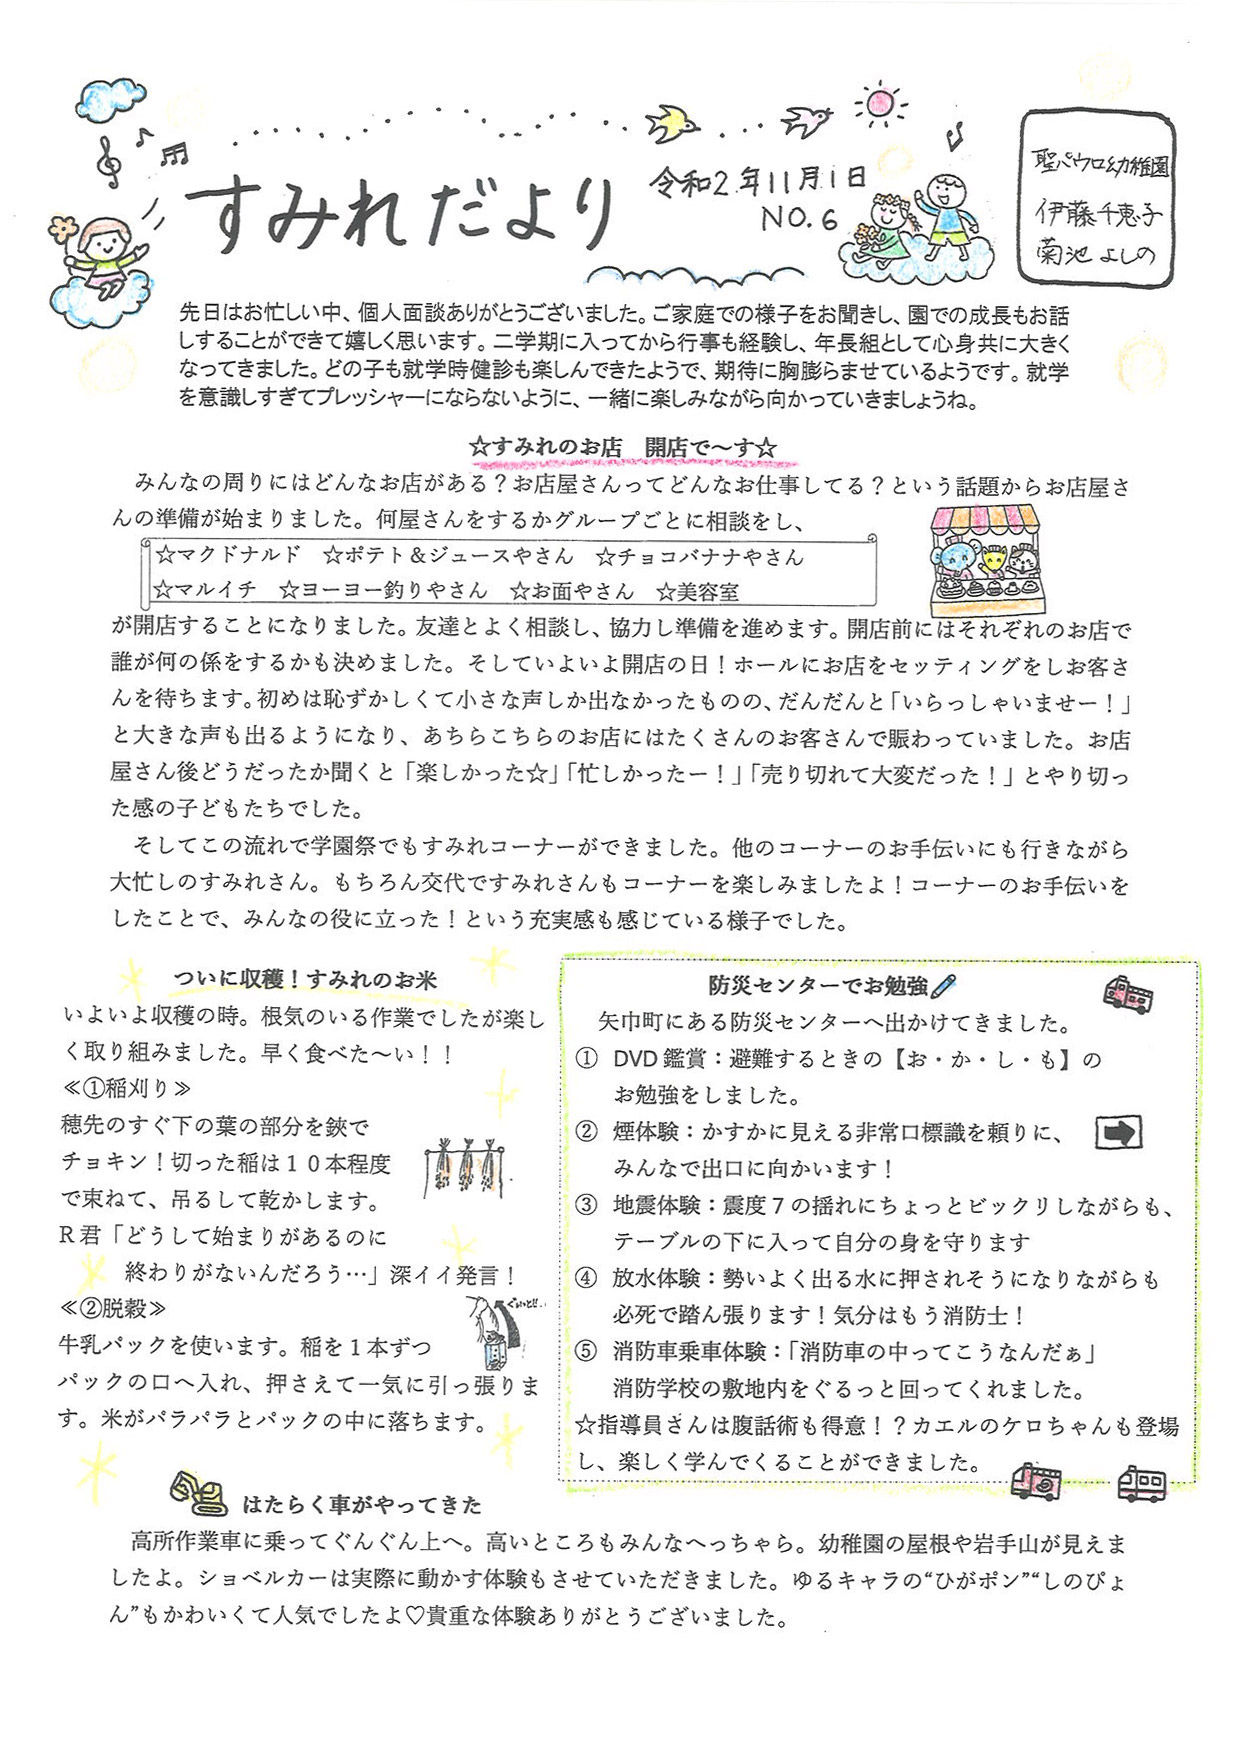 すみれだより
令和2年11月1日
NO.6
聖パウロ幼稚園
伊藤千恵子
菊池よしの
先日はお忙しい中、個人面談ありがとうございました。ご家庭での様子をお聞きし、園での成長もお話
しすることができて嬉しく思います。二学期に入ってから行事も経験し、年長組として心身共に大きく
なってきました。どの子も就学時健診も楽しんできたようで、期待に胸膨らませているようです。就学
を意識しすぎてプレッシャーにならないように、一緒に楽しみながら向かっていきましょうね。
☆すみれのお店　開店で～す☆
みんなの周りにはどんなお店がある？お店屋さんってどんなお仕事してる？という話題からお店屋さ
んの準備が始まりました。何屋さんをするかグループごとに相談をし、
☆マクドナルド　☆ポテト＆ジュースやさん　☆チョコバナナやさん
☆マルイチ　☆ヨーヨー釣りやさん　☆お面やさん　☆美容室
が開店することになりました。友達とよく相談し、協力し準備を進めます。開店前にはそれぞれのお店で
誰が何の係をするかも決めました。そしていよいよ開店の日！ホールにお店をセッティングをしお客さ
んを待ちます。初めは恥ずかしくて小さな声しか出なかったものの、だんだんと「いらっしゃいませー！」
と大きな声も出るようになり、あちらこちらのお店にはたくさんのお客さんで賑わっていました。お店
屋さん後どうだったか聞くと「楽しかった☆」「忙しかったー！」「売り切れて大変だった！」とやり切っ
た感の子どもたちでした。
そしてこの流れで学園祭でもすみれコーナーができました。他のコーナーのお手伝いにも行きながら
大忙しのすみれさん。もちろん交代ですみれさんもコーナーを楽しみましたよ！コーナーのお手伝いを
したことで、みんなの役に立った！という充実感も感じている様子でした。
ついに収穫！すみれのお米
いよいよ収穫の時。根気のいる作業でしたが楽し
く取り組みました。早く食べた～い！！
≪①稲刈り≫
穂先のすぐ下の葉の部分を鋏で
チョキン！切った稲は１０本程度
で束ねて、吊るして乾かします。
Ｒ君「どうして始まりがあるのに
終わりがないんだろう…」深イイ発言！
≪②脱穀≫
牛乳パックを使います。稲を１本ずつ
パックの口へ入れ、押さえて一気に引っ張りま
す。米がパラパラとパックの中に落ちます。
防災センターでお勉強
矢巾町にある防災センターへ出かけてきました。
① DVD鑑賞：避難するときの【お・か・し・も】の
お勉強をしました。
② 煙体験：かすかに見える非常口標識を頼りに、
みんなで出口に向かいます！
③ 地震体験：震度７の揺れにちょっとビックリしながらも、
テーブルの下に入って自分の身を守ります
④ 放水体験：勢いよく出る水に押されそうになりながらも
必死で踏ん張ります！気分はもう消防士！
⑤ 消防車乗車体験：「消防車の中ってこうなんだぁ」
消防学校の敷地内をぐるっと回ってくれました。
☆指導員さんは腹話術も得意！？カエルのケロちゃんも登場
し、楽しく学んでくることができました。
はたらく車がやってきた
高所作業車に乗ってぐんぐん上へ。高いところもみんなへっちゃら。幼稚園の屋根や岩手山が見えま
したよ。ショベルカーは実際に動かす体験もさせていただきました。ゆるキャラの“ひがポン”“しのぴょ
ん”もかわいくて人気でしたよ♡貴重な体験ありがとうございました。